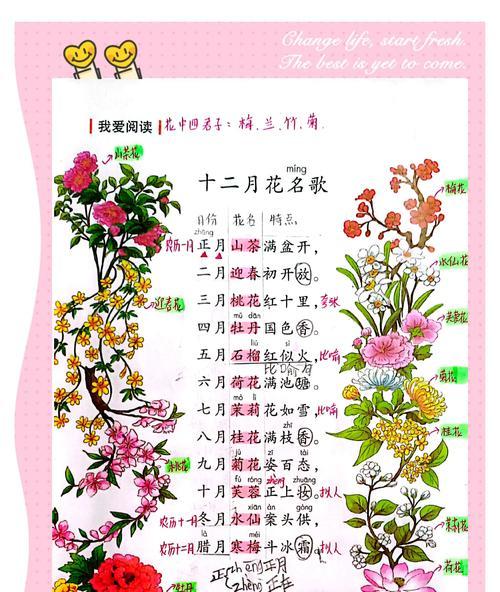 Change life, start fresh.
The best is yet to come.
我爱阅读 花中四君子：梅、兰、竹、菊。
山茶花
míng
十二月花名歌
梅花
月份 花名 特点
zhēng
农历一月 正月山茶满盆开，
水仙花
二月迎春初开放。
迎春花
三月桃花红十里，夸张
芙蓉花
mǔ dān
四月牡丹国色香。
liú sì
五月石榴红似火，比喻
比喻句
菊花
六月荷花满池塘。
mò lì
七月茉莉花如雪，比喻
桂花
zhī
八月桂花满枝香。
jú zī tài
九月菊花姿百态，
桃花
fú róng zhèng zhuāng
十月芙蓉正上妆。拟人
xiān àn gòng
农历十一月 冬月水仙案头供，
茉莉花
méi
农历十二月 腊月寒梅斗冰霜。拟人
荷花
正 zhēng 正月
zhèng 正在
牡丹